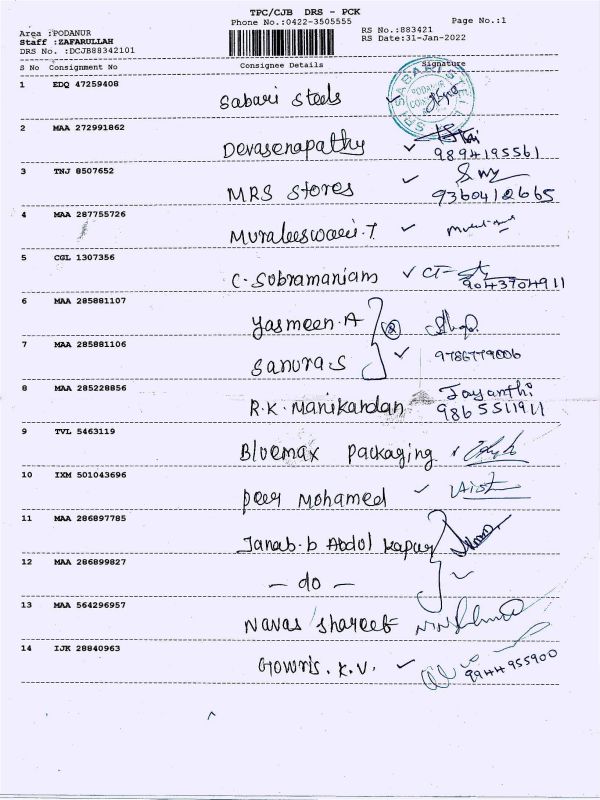 TPC/CJB DRS - PCK
Phone No.:0422-3505555
Page No.:1
Area :PODANUR
Staff :ZAFARULLAH
DRS No. :DCJB88342101
RS No.:883421
RS Date:31-Jan-2022
S No Consignment No Consignee Details Signature
1 EDQ 47259408 Sabari Steels
2 MAA 272991862 Devasenapathy
9894195561
3 TNJ 8507652 MRS Stores
9360412665
4 MAA 287755726 Muraleeswari.T
5 CGL 1307356 C. Subramaniam
9043704911
6 MAA 285881107 Yasmeen.A 2
7 MAA 285881106 Sanura.S 9786779006
8 MAA 285228856 R.K. Manikandan Jayanthi
9865511911
9 TVL 5463119 Bluemax Packaging
10 IXM 501043696 Peer Mohamed
11 MAA 286897785 Janab.b Abdul Kapur
12 MAA 286899827 — do —
13 MAA 564296957 Navas Shareef
14 IJK 28840963 Gowris. K.V.
9944955900